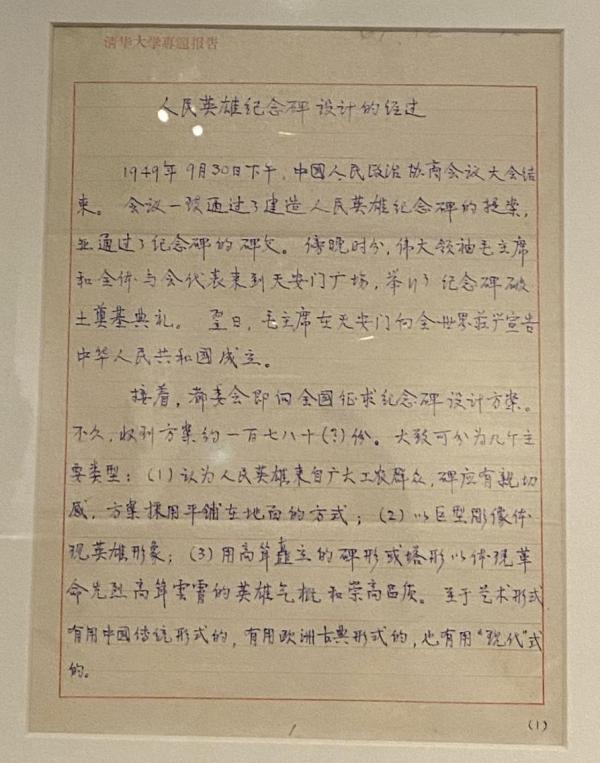 清华大学专题报告
人民英雄纪念碑设计的经过
1949年9月30日下午,中國人民政治协商会议大会结
束。会议一致通过了建造人民英雄纪念碑的提案,
並通过了纪念碑的碑文。傍晚时分,伟大领袖毛主席
和全体与会代表来到天安门广场,举行了纪念碑破
土奠基典礼。翌日,毛主席在天安门向全世界庄严宣告
中华人民共和國成立。
接着,都委会即向全國征求纪念碑设计方案。
不久,收到方案约一百七八十(?)份。大致可分为几个主
要类型:(1)认为人民英雄来自广大工农群众,碑应有親切
感,方案採用平铺在地面的方式;(2)以巨型彫像体
现英雄形象;(3)用高耸矗立的碑形或塔形以体现革
命先烈高耸雲霄的英雄气概和崇高品质。至于艺术形式
有用中國传统形式的,有用欧洲古典形式的,也有用“现代”式
的。
(1)